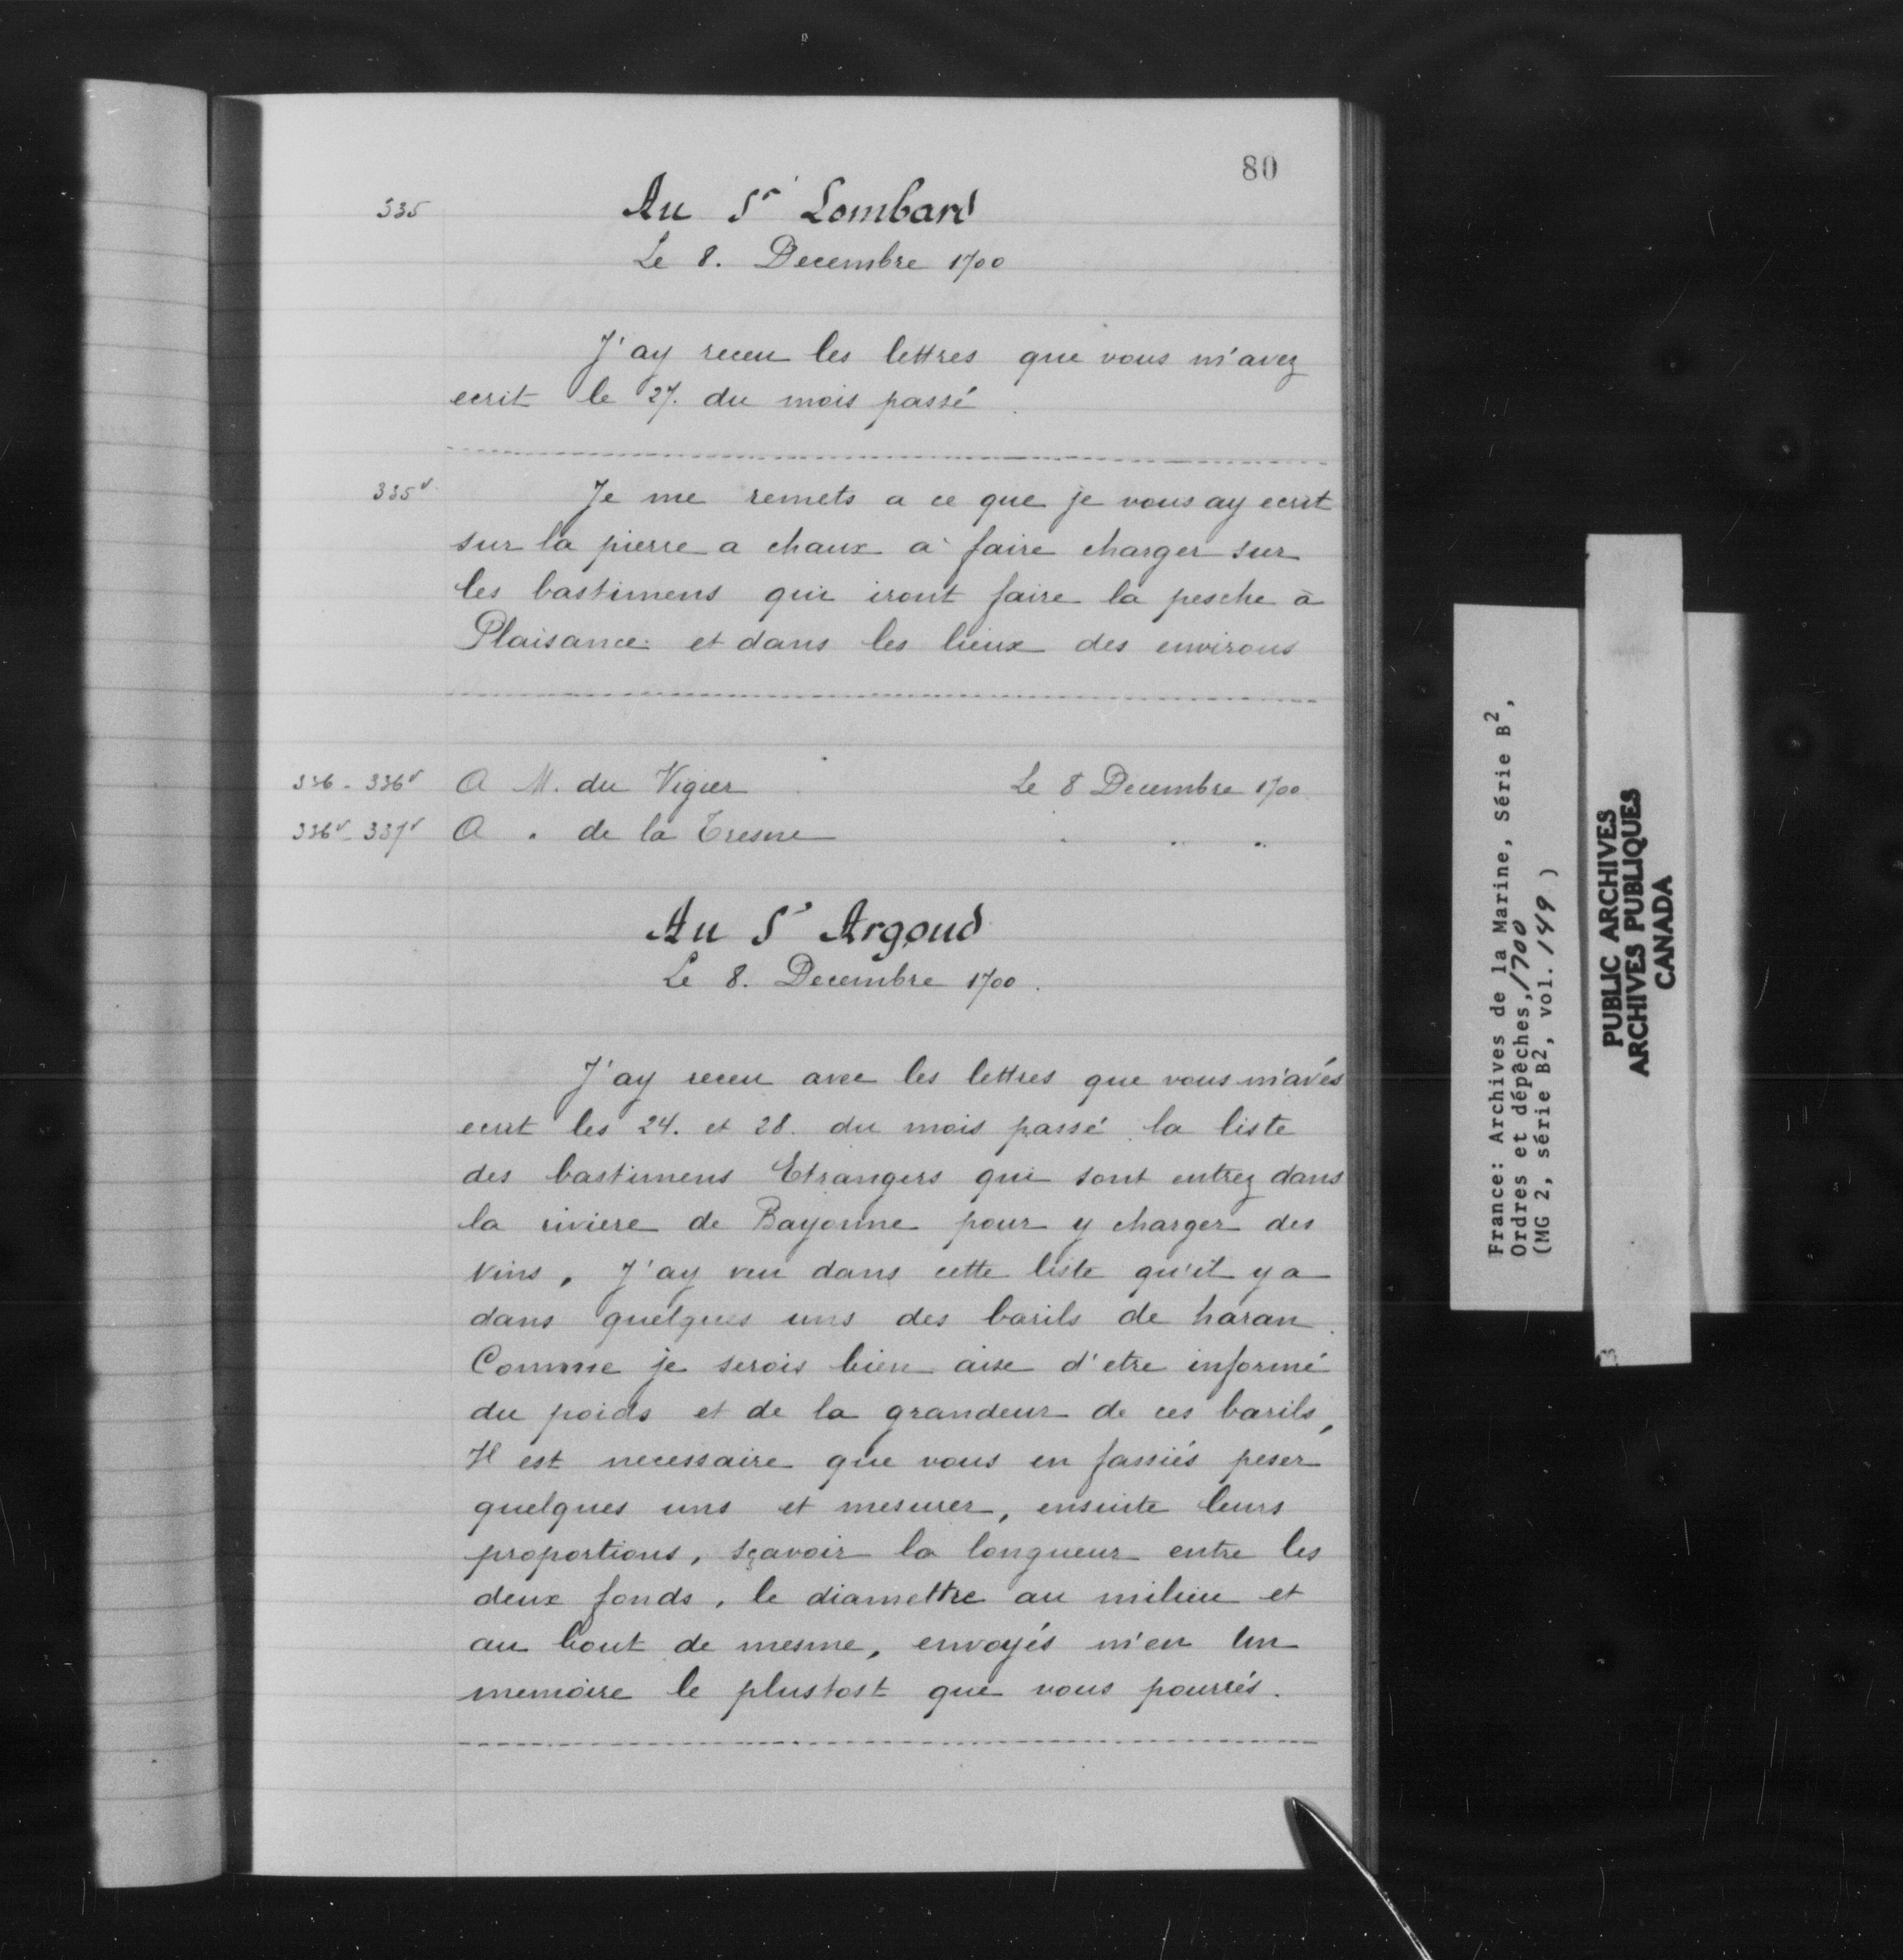 80
335 Au Sr Lombard
Le 8. Decembre 1700
J'ay receu les lettres que vous m'avez
ecrit le 27. du mois passé.
335v Je me remets a ce que je vous ay ecrit
sur la pierre a chaux a faire charger sur
les bastimens qui iront faire la pesche à
Plaisance et dans les lieux des environs
336 - 336v A M. du Vigier Le 8 Decembre 1700
336v - 337v A " de la Tresne " " "
Au Sr Argoud
Le 8. Decembre 1700.
J'ay receu avec les lettres que vous m'avés
ecrit les 24. et 28. du mois passé la liste
des bastimens Etrangers qui sont entrez dans
la riviere de Bayonne pour y charger des
vins, J'ay veu dans cette liste qu'il y a
dans quelques uns des barils de haran.
Comme je serois bien aise d'etre informé
du poids et de la grandeur de ces barils,
Il est necessaire que vous en fassiés peser
quelques uns et mesurer, ensuite leurs
proportions, sçavoir la longueur entre les
deux fonds, le diamettre au milieu et
au bout de mesme, envoyés m'en Un
memoire le plustost que vous pourrés.
France: Archives de la Marine, Série B2,
Ordres et dépêches, 1700
(MG 2, série B2, vol. 149)
PUBLIC ARCHIVES
ARCHIVES PUBLIQUES
CANADA